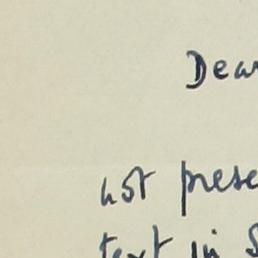 Dear
not prese
text in S